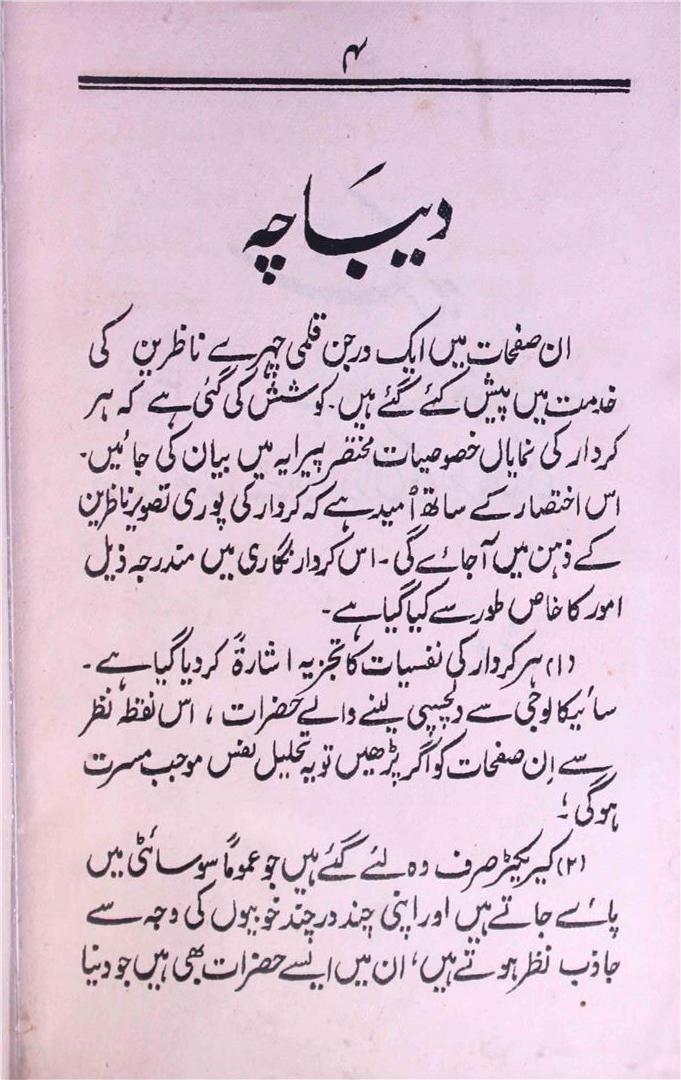 ۴
دیباچہ
ان صفحات میں ایک درجن قلمی چہرے ناظرین کی
خدمت میں پیش کئے گئے ہیں۔ کوشش کی گئی ہے کہ ہر
کردار کی نمایاں خصوصیات مختصر پیرایہ میں بیان کی جائیں۔
اس اختصار کے ساتھ اُمید ہے کہ کردار کی پوری تصویر ناظرین
کے ذہن میں آجائے گی۔ اس کردار نگاری میں مندرجہ ذیل
امور کا خاص طور سے کیا گیا ہے۔
(۱) ہر کردار کی نفسیات کا تجزیہ اشارۃً کردیا گیا ہے۔
سائیکالوجی سے دلچسپی لینے والے حضرات، اس نقطہ نظر
سے اِن صفحات کو اگر پڑھیں تو یہ تحلیل نفس موجب مسرت
ہوگی؛
(۲) کیریکیٹر صرف وہ لئے گئے ہیں جو عموماً سوسائٹی میں
پائے جاتے ہیں اور اپنی چند در چند خوبیوں کی وجہ سے
جاذب نظر ہوتے ہیں، ان میں ایسے حضرات بھی ہیں جو دنیا